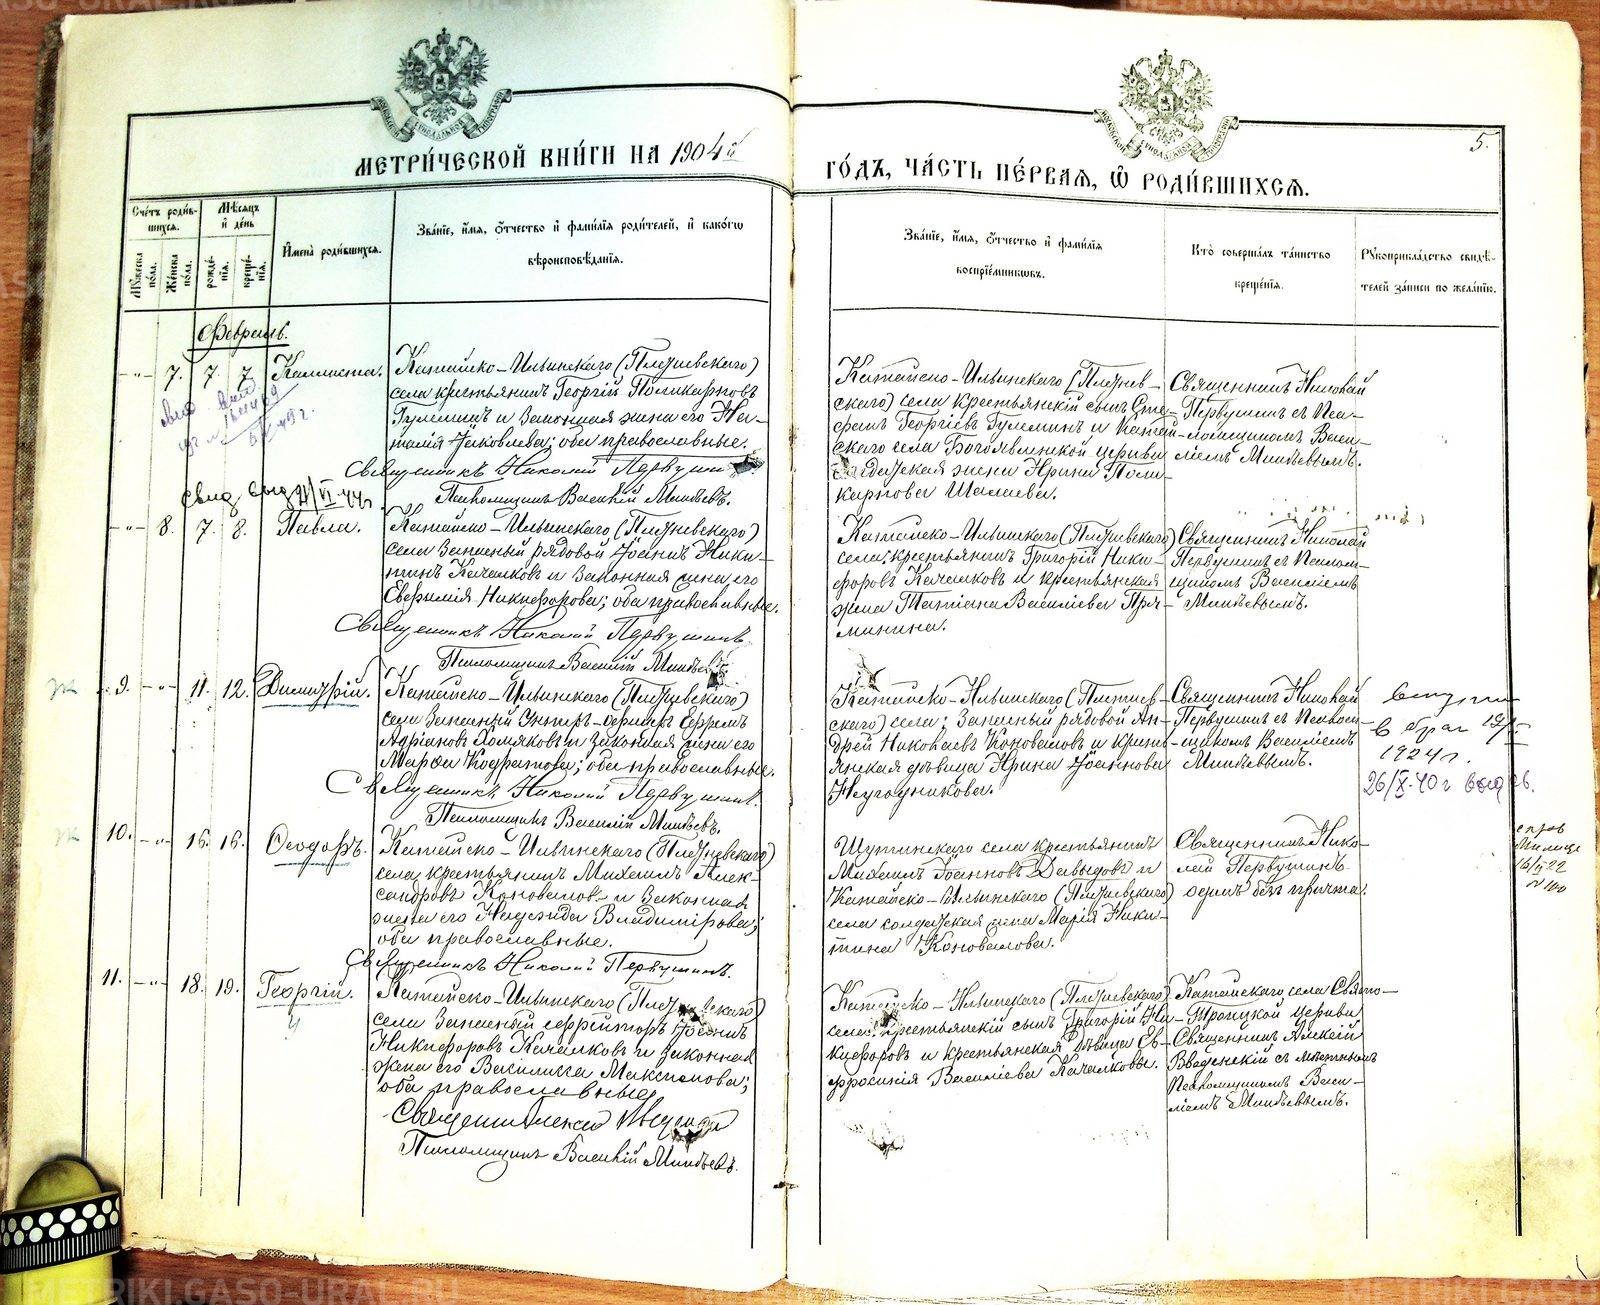 METRIKI.GASO-URAL.RU
МЕТРИ́ЧЕСКОЙ КНИ́ГИ НА 1904й
ГО́ДЪ, ЧА́СТЬ ПЕ́РВАѦ, Ѡ РОДИ́ВШИХСѦ.
5.
Сче́тъ роди́вшихся.
Му́жеска по́ла.
Же́нска по́ла.
Мѣ́сяцъ и де́нь
рожде́нїя.
креще́нїя.
И҆мена̀ роди́вшихся.
Зва́нїе, и҆́мя, о҆́тчество и҆ фами́лїя роди́телей, и҆ како́гѡ
вѣроисповѣ́данїя.
Зва́нїе, и҆́мя, о҆́тчество и҆ фами́лїя
воспрїе́мниковъ.
Кто̀ соверша́лъ та́инство
креще́нїя.
Рꙋкоприкла́дство свидѣ́-
телей за́писи по жела́нїю.
Февраль.
-"- 7. 7. 7. Каллиста.
Катайско-Ильинскаго (Плотневскаго)
села крестьянинъ Георгій Поликарповъ
и законная жена его На-
талія Іаковлева; оба православные.
Священникъ Николай Первушинъ
Псаломщикъ Василій Минѣевъ.
Катайско-Ильинскаго
скаго) села крестьянскій сынъ Сте-
фанъ Георгіевъ и Катай-
скаго села Богоявленской церкви
солдатская жена Ирина Поли-
карпова
Священникъ Николай
Первушинъ съ Пса-
ломщикомъ Васи-
ліемъ Минѣевымъ.
-"- 8. 7. 8. Павла.
Катайско-Ильинскаго (Плотневскаго)
села запасный рядовой Іоаннъ Ники-
тинъ Качалковъ и законная жена его
Евфимія Никифорова; оба православные.
Священникъ Николай Первушинъ.
Псаломщикъ Василій Минѣевъ.
Катайско-Ильинскаго (Плотневскаго)
села; крестьянинъ Григорій Ники-
форовъ Качалковъ и крестьянская
жена Татіана Василіева Пря-
минина.
Священникъ Николай
Первушинъ съ Псалом-
щикомъ Василіемъ
Минѣевымъ.
9. -"- 11. 12. Димитрій.
Катайско-Ильинскаго (Плотневскаго)
села запасный унтеръ-офицеръ Ефремъ
Адріановъ Хомяковъ и законная жена его
Марѳа Кодратова; оба православные.
Священникъ Николай Первушинъ.
Псаломщикъ Василій Минѣевъ.
Катайско-Ильинскаго (Плотнев-
скаго) села; запасный рядовой Ан-
дрей Николаевъ Коноваловъ и кресть-
янская дѣвица Ирина Іоаннова
Священникъ Николай
Первушинъ съ Псалом-
щикомъ Василіемъ
Минѣевымъ.
в брак
1924 г.
26/X-40 г
10. -"- 16. 16. Ѳеодоръ.
Катайско-Ильинскаго (Плотневскаго)
села, крестьянинъ Михаилъ Алек-
сандровъ Коноваловъ и законная
жена его Надежда Владимірова;
оба православные.
Священникъ Николай Первушинъ.
Шутинскаго села крестьянинъ
Михаилъ Іоанновъ Давыдовъ и
Катайско-Ильинскаго (Плотневскаго)
села солдатская жена Марія Ники-
тина Коновалова.
Священникъ Нико-
лай Первушинъ
одинъ безъ причта.
11. -"- 18. 19. Георгій.
Катайско-Ильинскаго
села запасный ефрейторъ Іоаннъ
Никифоровъ Качалковъ и законная
жена его Василисса Максимова;
оба православные.
Псаломщикъ Василій Минѣевъ.
Катайско-Ильинскаго (Плотневскаго)
села; крестьянскій сынъ Григорій Ни-
кифоровъ и крестьянская дѣвица Ев-
фросинія Василіева Качалковы.
Катайскаго села Свято-
Троицкой церкви
Священникъ Алексій
Введенскій съ мѣстнымъ
Псаломщикомъ Васи-
ліемъ Минѣевымъ.
METRIKI.GASO-URAL.RU